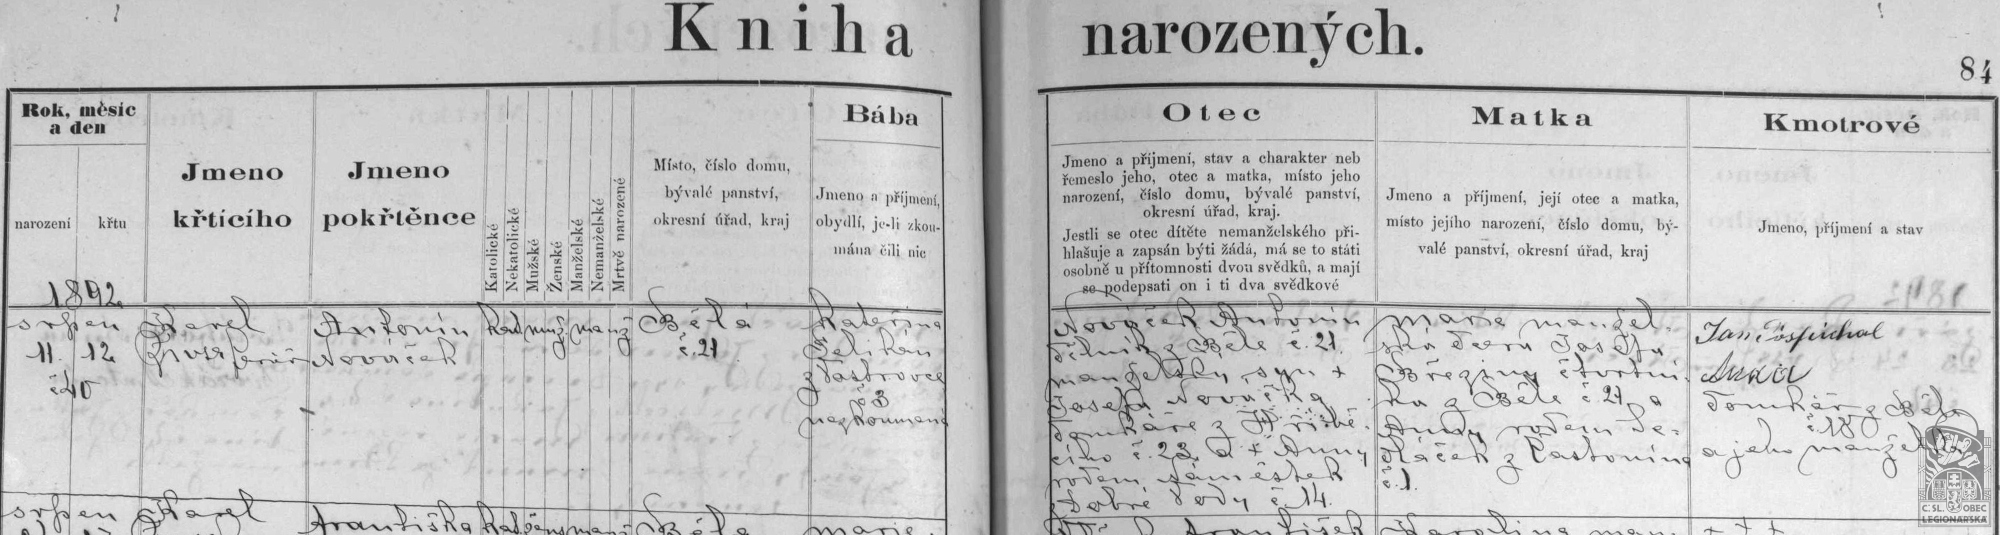 Kniha narozených.
84
Rok, měsíc
a den
narození
křtu
Jmeno
křtícího
Jmeno
pokřtěnce
Katolické
Nekatolické
Mužské
Ženské
Manželské
Nemanželské
Mrtvě narozené
Místo, číslo domu,
bývalé panství,
okresní úřad, kraj
Bába
Jmeno a příjmení,
obydlí, je-li zkou-
mána čili nic
Otec
Jmeno a příjmení, stav a charakter neb
řemeslo jeho, otec a matka, místo jeho
narození, číslo domu, bývalé panství,
okresní úřad, kraj.
Jestli se otec dítěte nemanželského při-
hlašuje a zapsán býti žádá, má se to státi
osobně u přítomnosti dvou svědků, a mají
se podepsati on i ti dva svědkové
Matka
Jmeno a příjmení, její otec a matka,
místo jejího narození, číslo domu, bý-
valé panství, okresní úřad, kraj
Kmotrové
Jmeno, příjmení a stav
1892
srpen
11. 12
Karel
Antonín
Nováček
kat muž manž
Bělá
č. 21
Kateřina
Pelikán
č 3
nezkoumená
Nováček Antonín
dělník z Bělé č. 21.
manželský syn +
Josefa Nováčka
domkáře z
č. 23. a + Anny
rodem Náměstek
z Dobré Vody č. 14.
Marie manžel-
ská dcera Josefa
Březiny čtvrtní-
ka z Bělé č. 21 a
Anny rodem Se-
dláček z Častonína
č. 1.
Jan Pospíchal
domkář z Bělé
č 18
a jeho manželka
srpen
Karel
Františka
Bělá
Marie
František
Karolina man-
+ + +
ČSL. OBEC
LEGIONÁŘSKÁ